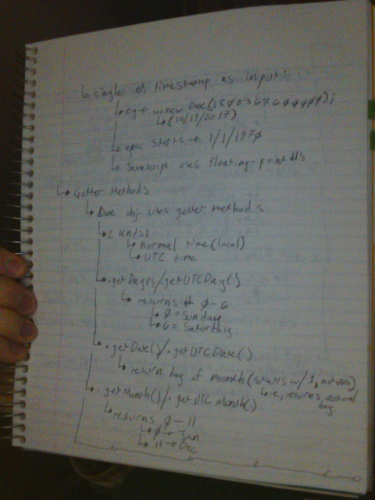 ↳ single int timestamp as input:
↳ e.g → new Date(
↳ (10/13/2017)
↳ epic starts → 1/1/197∅
↳ Javascript uses floating-point #s
↳ Getter Methods
↳ Date obj uses getter methods
↳ 2 kinds:
↳ normal time (local)
↳ UTC time
↳ .getDay()/getUTCDay()
↳ returns # ∅-6
↳ ∅ = Sunday
6 = Saturday
↳ .getDate()/.getUTCDate()
↳ return day of month (starts w/ 1, not
i.e., returns actual
day
↳ .getMonth()/.getUTCMonth()
↳ returns ∅-11
↳ ∅ → Jan
↳ 11 → Dec